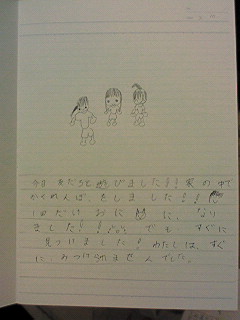 今日 友だちと遊びました!! 家の中で
かくれんぼをしました!!
1回だけおに に、なり
ました!! でも すぐに
見つけました! わたしは、すぐ
に みつけられませんでした。